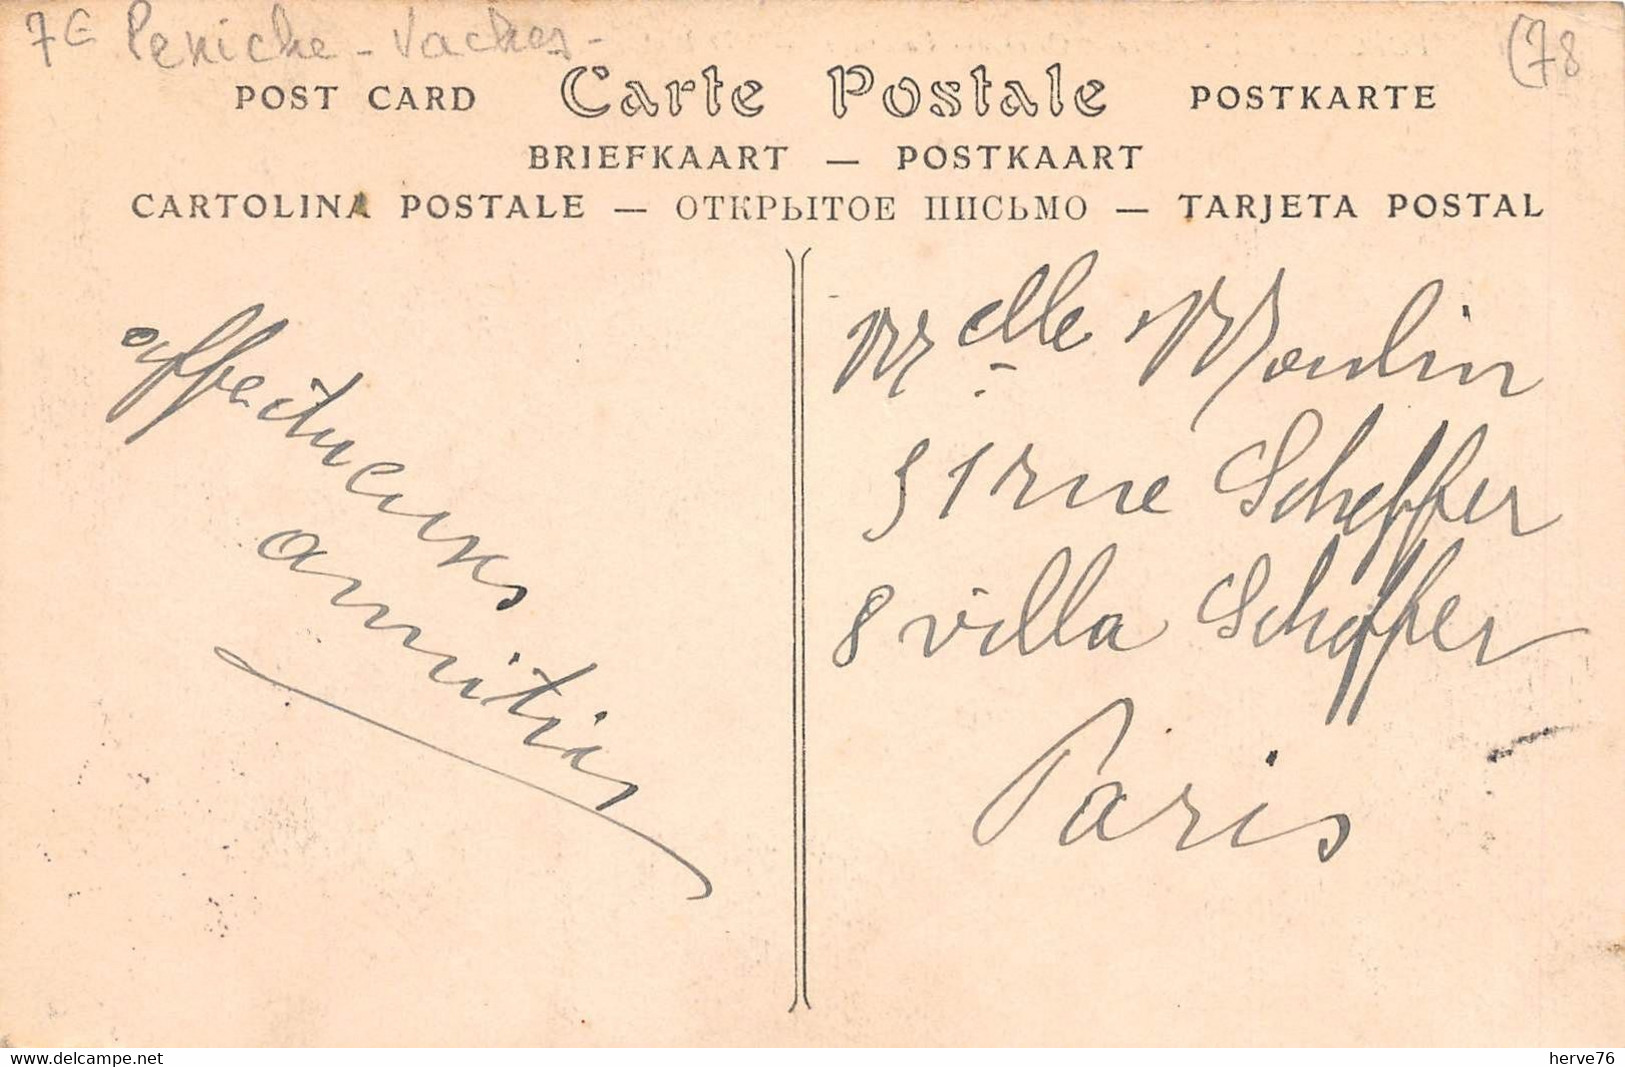 7€ Peniche - Vaches -
(78
POST CARD Carte Postale POSTKARTE
BRIEFKAART — POSTKAART
CARTOLINA POSTALE — ОТКРЫТОЕ ПИСЬМО — TARJETA POSTAL
affectueuses
amitiés
Melle Moulin
51 rue Scheffer
8 villa Scheffer
Paris
www.delcampe.net
herve76